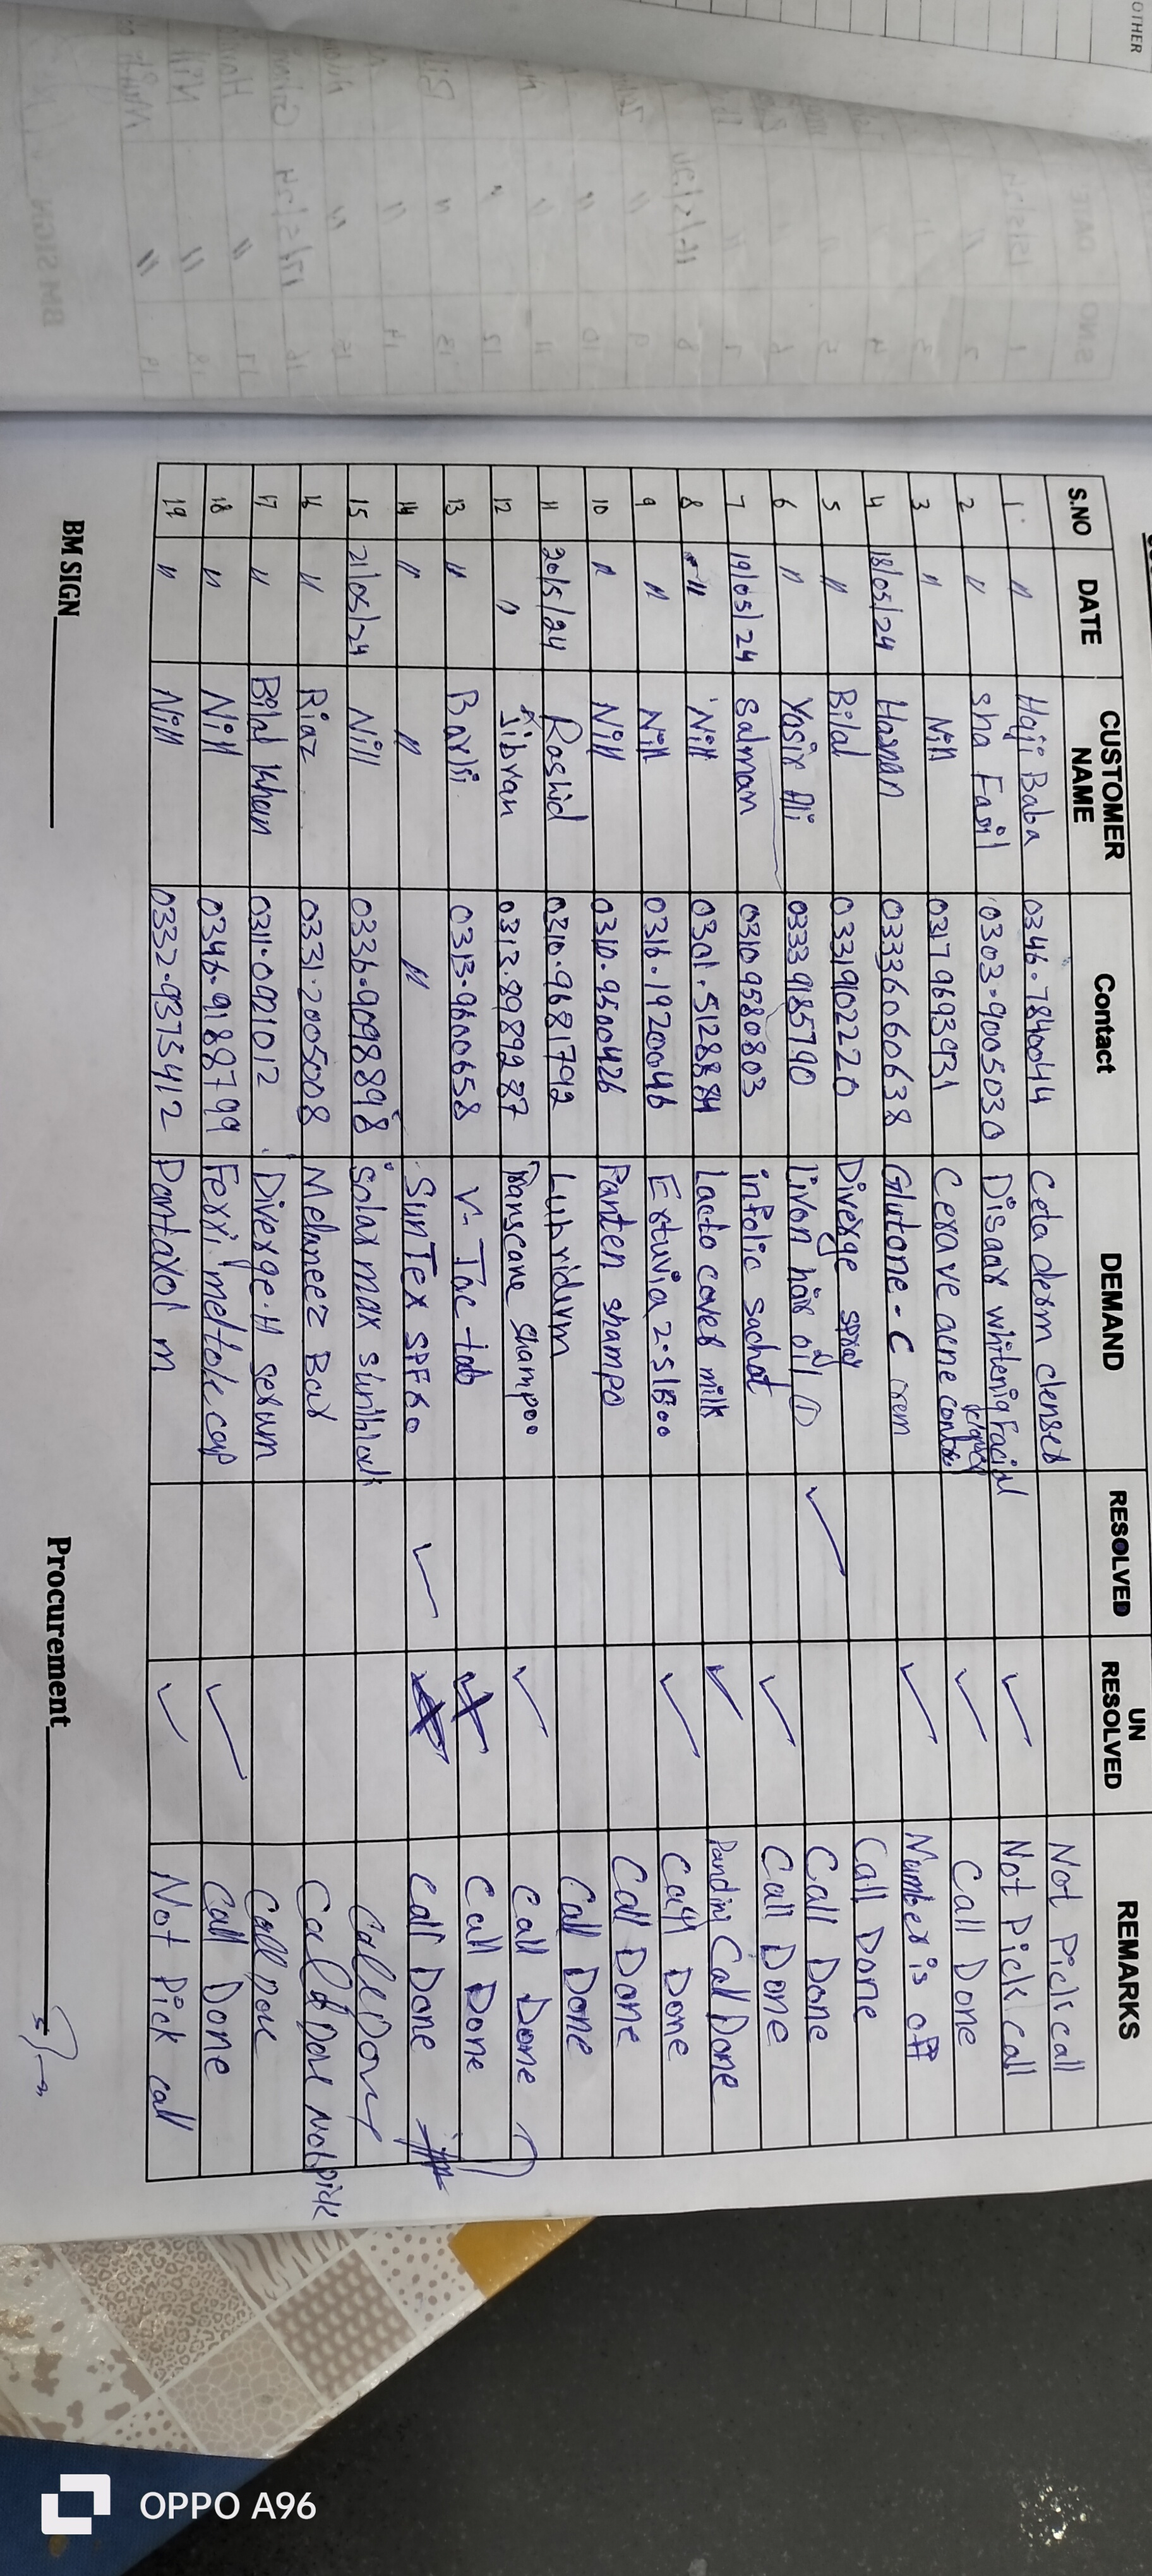 OTHER
S.NO DATE CUSTOMER NAME Contact DEMAND RESOLVED UN RESOLVED REMARKS
1 " Haji Baba 0346-7840044 Ceta derm clenser Not Pick call
2 " sha Fasil 0303-9005030 Disaar whitenig Facial ✓ Not Pick call
3 " Nill 0317 9693931 Cerave acne control ✓ Call Done
4 18/05/24 Hasnan 03336060638 Glutone-C crem ✓ Number is off
5 " Bilal 03319022220 Diverge spray Call Done
6 " Yasir Ali 03339185790 Livon hair oil ① ✓ Call Done
7 19/05/24 Salman 03109580803 infolic sachat ✓ Call Done
8 " Nill 0301-5128884 Lacto caver milk ✓ Panding Call Done
9 " Nill 0316-1920046 Extuvia 2.5/800 ✓ Call Done
10 " Nill 0310-9500426 Panten shampo Call Done
11 20/5/24 Rashid 0310-9681792 Lubriderm Call Done
12 " Jibran 0313-8989287 Transcane shampoo ✓ Call Done
13 " Barki 0313-9600658 V-Tac tab Call Done
14 " " " SunTex SPF60 ✓ Call Done
15 21/05/24 Nill 0336-9098898 Solar max sunblock Call Done
16 " Riaz 0331-2005008 Melaneez Bar Call Done Not pick
17 " Bilal Khan 0311-0021012 Diverge-H serum Call Done
18 " Nill 0346-9188799 Ferri meltole cap ✓ Call Done
19 " Nill 0332-9375412 Pantaxol m ✓ Not Pick call
BM SIGN Procurement
OPPO A96